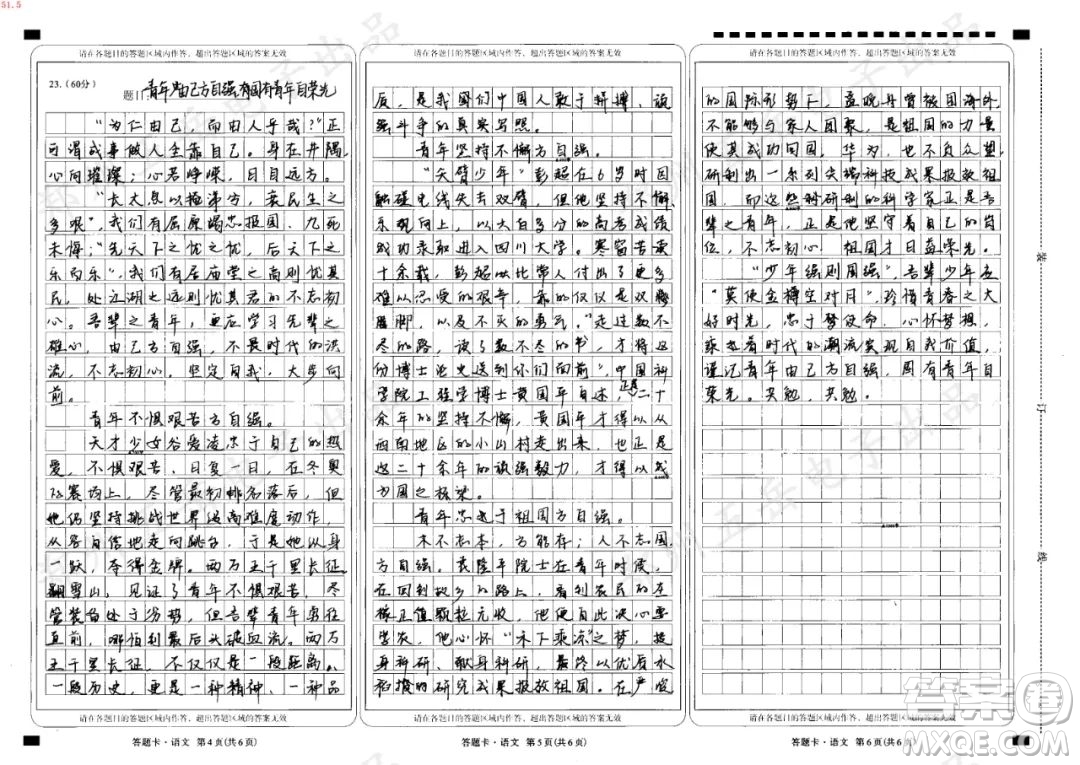 51.5
请在各题目的答题区域内作答，超出答题区域的答案无效
23.（60分）
题目 青年当由己方自强 国有青年自荣光
“为仁由己，而由人乎哉？”正
可谓成事做人全靠自己。身在井隅，
心向璀璨；心若峥嵘，日自远方。
“长太息以掩涕兮，哀民生之
多艰”，我们有屈原竭忠报国，九死
未悔；“先天下之忧之忧，后天下之
乐而乐”，我们有居庙堂之高则忧其
民，处江湖之远则忧其君的不忘初
心。吾辈之青年，更应学习先辈之
雄心，由己方自强，不畏时代的洪
流，不忘初心，坚定自我，大步向
前。
青年不惧艰苦方自强。
天才少女谷爱凌忠于自己的热
爱，不惧艰苦、日复一日，在冬奥
会赛场上，尽管最初排名落后，但
她仍坚持挑战世界级高难度动作，
从容自信地走向跳台，于是她以身
一跃，夺得金牌。两万五千里长征
翻雪山，见证了青年不惧艰苦，尽
管装备处于劣势，但吾辈青年勇往
直前，哪怕到最后头破血流。两万
五千里长征，不仅仅是一段距离、
一段历史，更是一种精神、一种品
请在各题目的答题区域内作答，超出答题区域的答案无效
答题卡·语文 第4页(共6页)
请在各题目的答题区域内作答，超出答题区域的答案无效
质，是我们中国人敢于拼搏、顽
强斗争的真实写照。
青年坚持不懈方自强。
“无臂少年”彭超在6岁时因
触碰电线失去双臂，但他坚持不懈
乐观向上，以六百多分的高考成绩
成功录取进入四川大学。寒窗苦读
十余载，彭超以比常人付出了更多
难以忍受的艰辛，靠的仅仅是双
脚，以及不灭的勇气。“走过数不
尽的路，读了数不尽的书，才得这
份博士论文送到你们面前”，中国科
学院工程学博士黄国平自述，二十
余年的坚持不懈，黄国平才得以从
西南地区的小山村走出来，也正是
这二十余年的顽强毅力，才得以成
为国之栋梁。
青年忠于祖国方自强。
木不忘本，方能存；人不忘国
方自强。袁隆平院士在青年时候，
在回到故乡的路上，看到农民的庄
稼正值颗粒无收，他便自此决心要
学农，他心怀“禾下乘凉”之梦，投
身科研、献身科研，最终以优质水
稻的研究成果报效祖国。在严峻
请在各题目的答题区域内作答，超出答题区域的答案无效
答题卡·语文 第5页(共6页)
请在各题目的答题区域内作答，超出答题区域的答案无效
的国际形势下，孟晚舟曾被困海外
不能够与家人团聚，是祖国的力量
使其成功回国，华为，也不负众望
研制出一系列尖端科技成果报效祖
国，而这些科研研制的科学家正是吾
辈之青年，正是他坚守着自己的岗
位，不忘初心，祖国才日益荣光。
“少年强则国强”，吾辈少年应
“莫使金樽空对月”，珍惜青春之大
好时光，忠于梦使命，心怀梦想，
乘着时代的潮流实现自我价值，
谨记青年由己方自强，国有青年自
荣光。共勉，共勉。
请在各题目的答题区域内作答，超出答题区域的答案无效
答题卡·语文 第6页(共6
装
订
线
答案卷
www.MXQE.COM